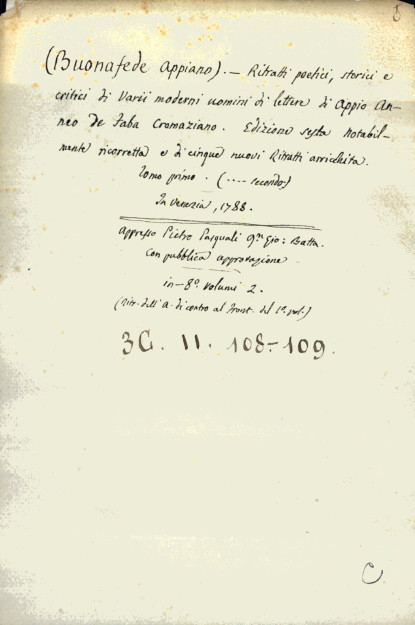 (Buonafede Appiano). — Ritratti poetici, storici e
critici di Varii moderni uomini di lettere di Appio An-
neo de Faba Cromaziano. Edizione sesta notabil-
mente ricorretta e di cinque nuovi Ritratti arricchita.
Tomo primo. (.... secondo)
In Venezia, 1788.
appresso Pietro Pasquali qm Gio: Batta.
con pubblica approvazione
in-8º. volumi 2.
(Ritr. dell' A. di contro al front. del 1º. vol.)
3C. 11. 108-109.
C